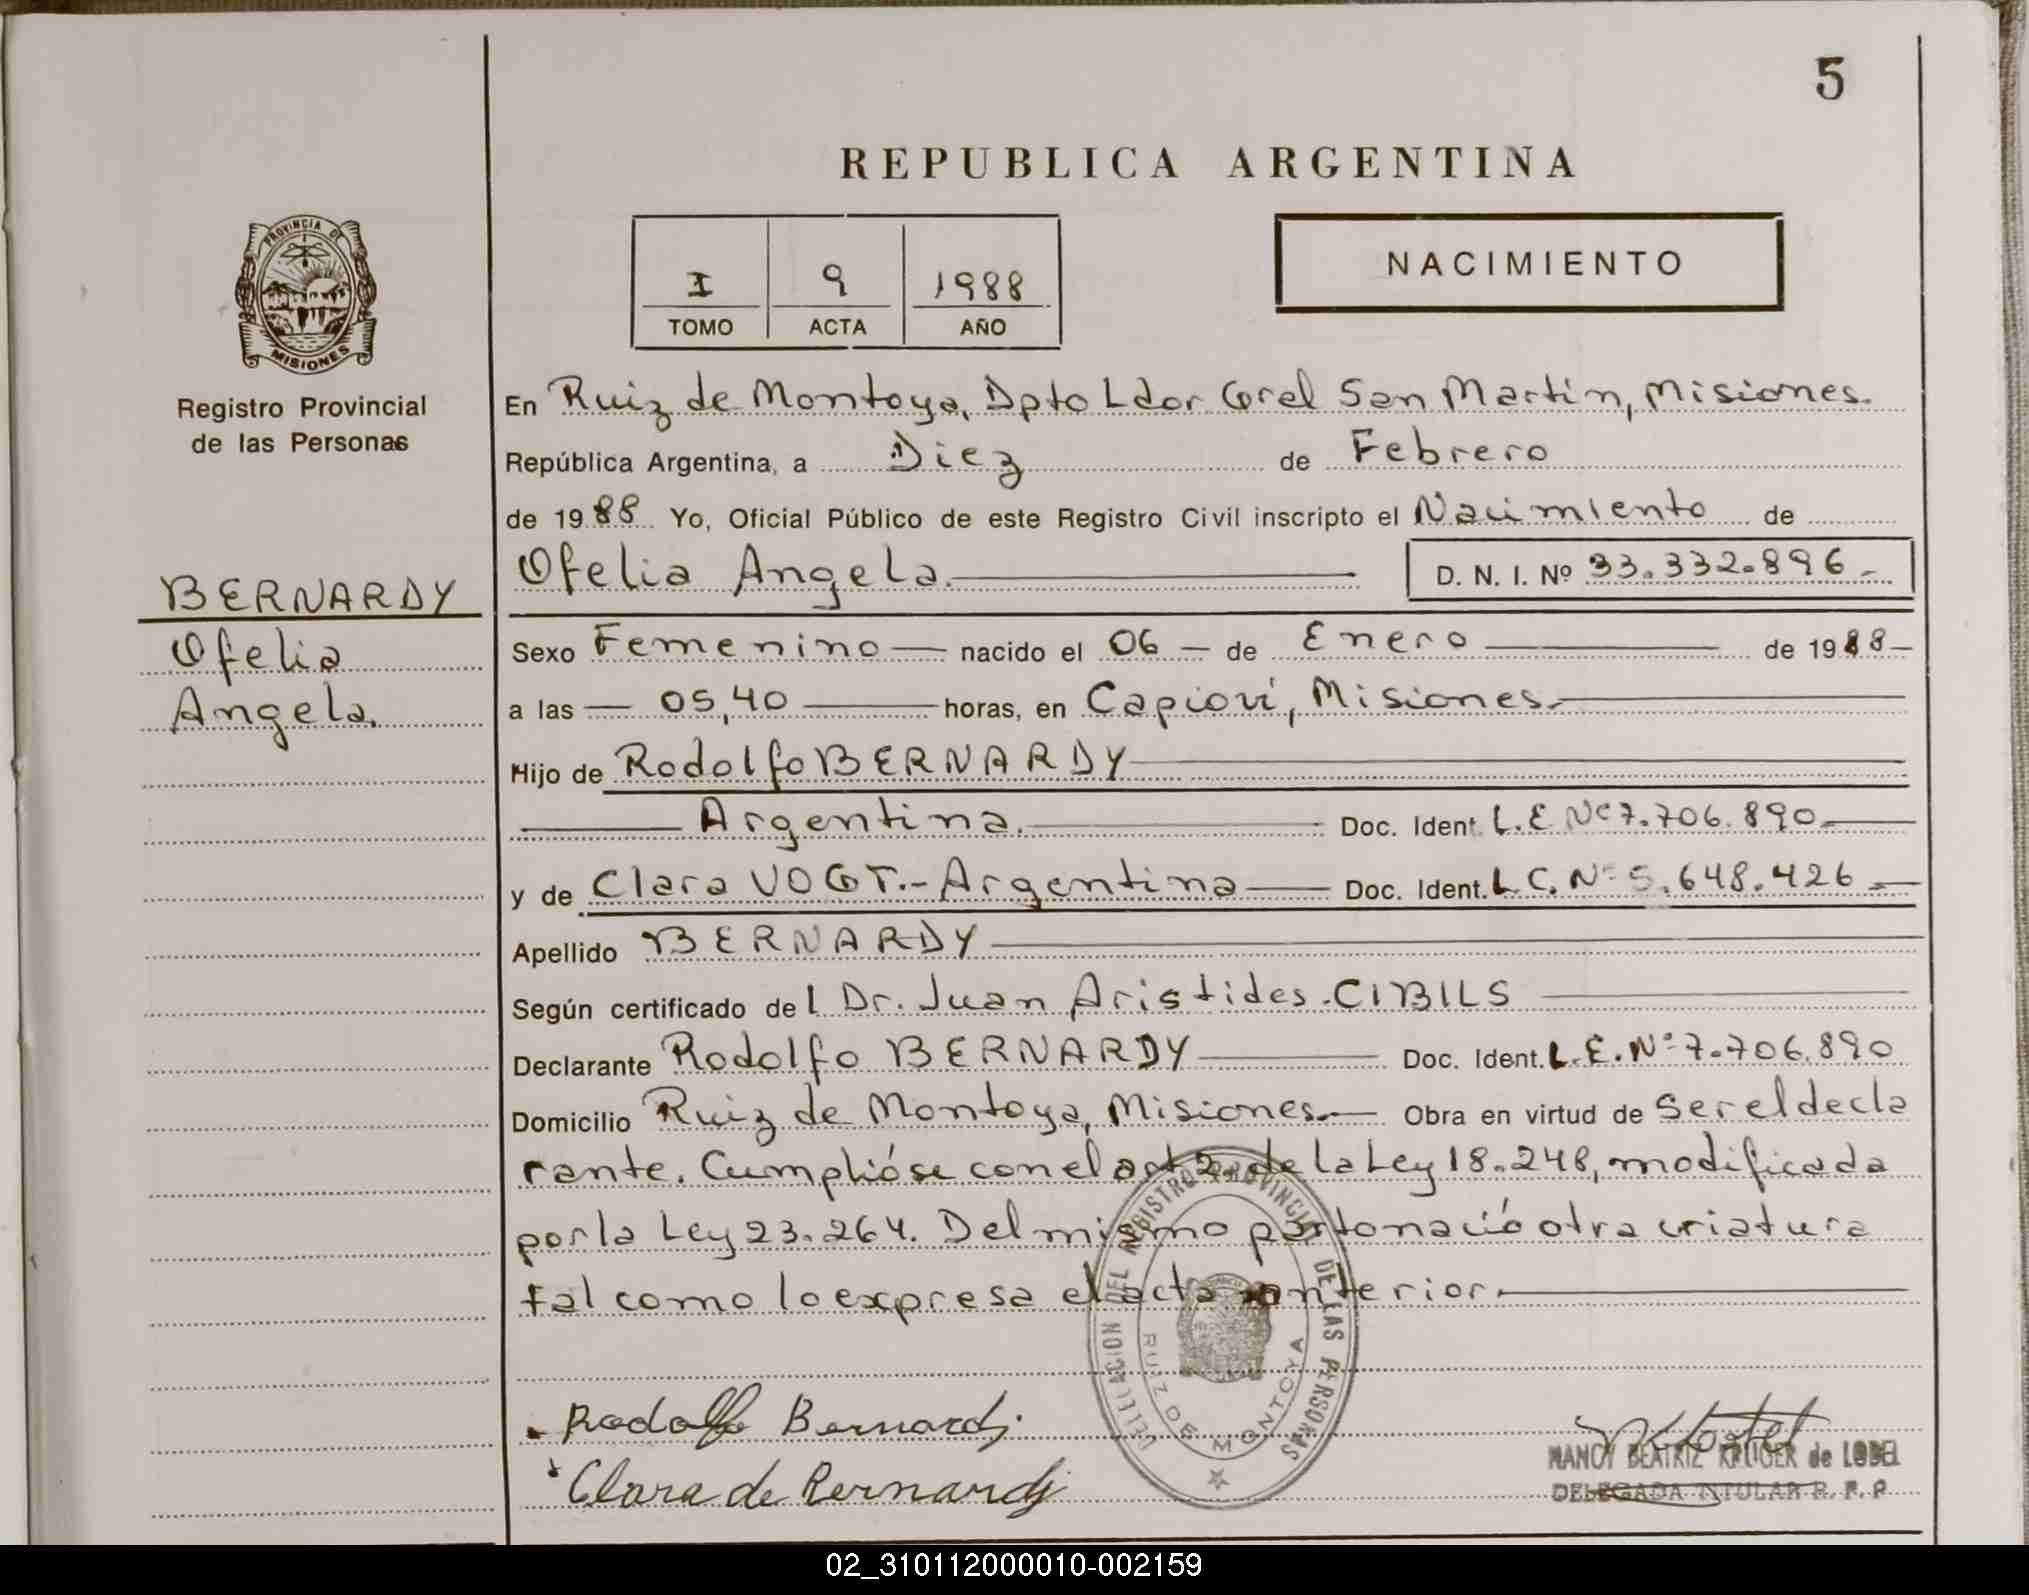 5
REPUBLICA ARGENTINA
PROVINCIA DE
MISIONES
Registro Provincial
de las Personas
I 9 1988
TOMO ACTA AÑO
NACIMIENTO
BERNARDY
Ofelia
Angela.
En Ruiz de Montoya, Dpto Ldor Gral San Martín, Misiones.
República Argentina, a Diez de Febrero
de 1988 Yo, Oficial Público de este Registro Civil inscripto el Nacimiento de
Ofelia Angela. D. N. I. Nº 33.332.896.-
Sexo Femenino nacido el 06 - de Enero de 1988-
a las 05,40 horas, en Capioví, Misiones.
Hijo de Rodolfo BERNARDY
Argentina. Doc. Ident. L.E Nº 7.706.890
y de Clara VOGT.- Argentina Doc. Ident. L.C. Nº 5.648.426
Apellido BERNARDY
Según certificado del Dr. Juan Aristides CIBILS
Declarante Rodolfo BERNARDY Doc. Ident. L.E. Nº 7.706.890
Domicilio Ruiz de Montoya, Misiones. Obra en virtud de ser el decla
rante. Cumplióse con el art 2. de la Ley 18.248, modificada
por la Ley 23.264. Del mismo parto nació otra criatura
tal como lo expresa el acta anterior.
DELEGACION DEL REGISTRO PROVINCIAL DE LAS PERSONAS
RUIZ DE MONTOYA
Rodolfo Bernardj
Clara de Bernardj
NANCY BEATRIZ KRUGER de LODEL
DELEGADA TITULAR R. P. P.
02_310112000010-002159